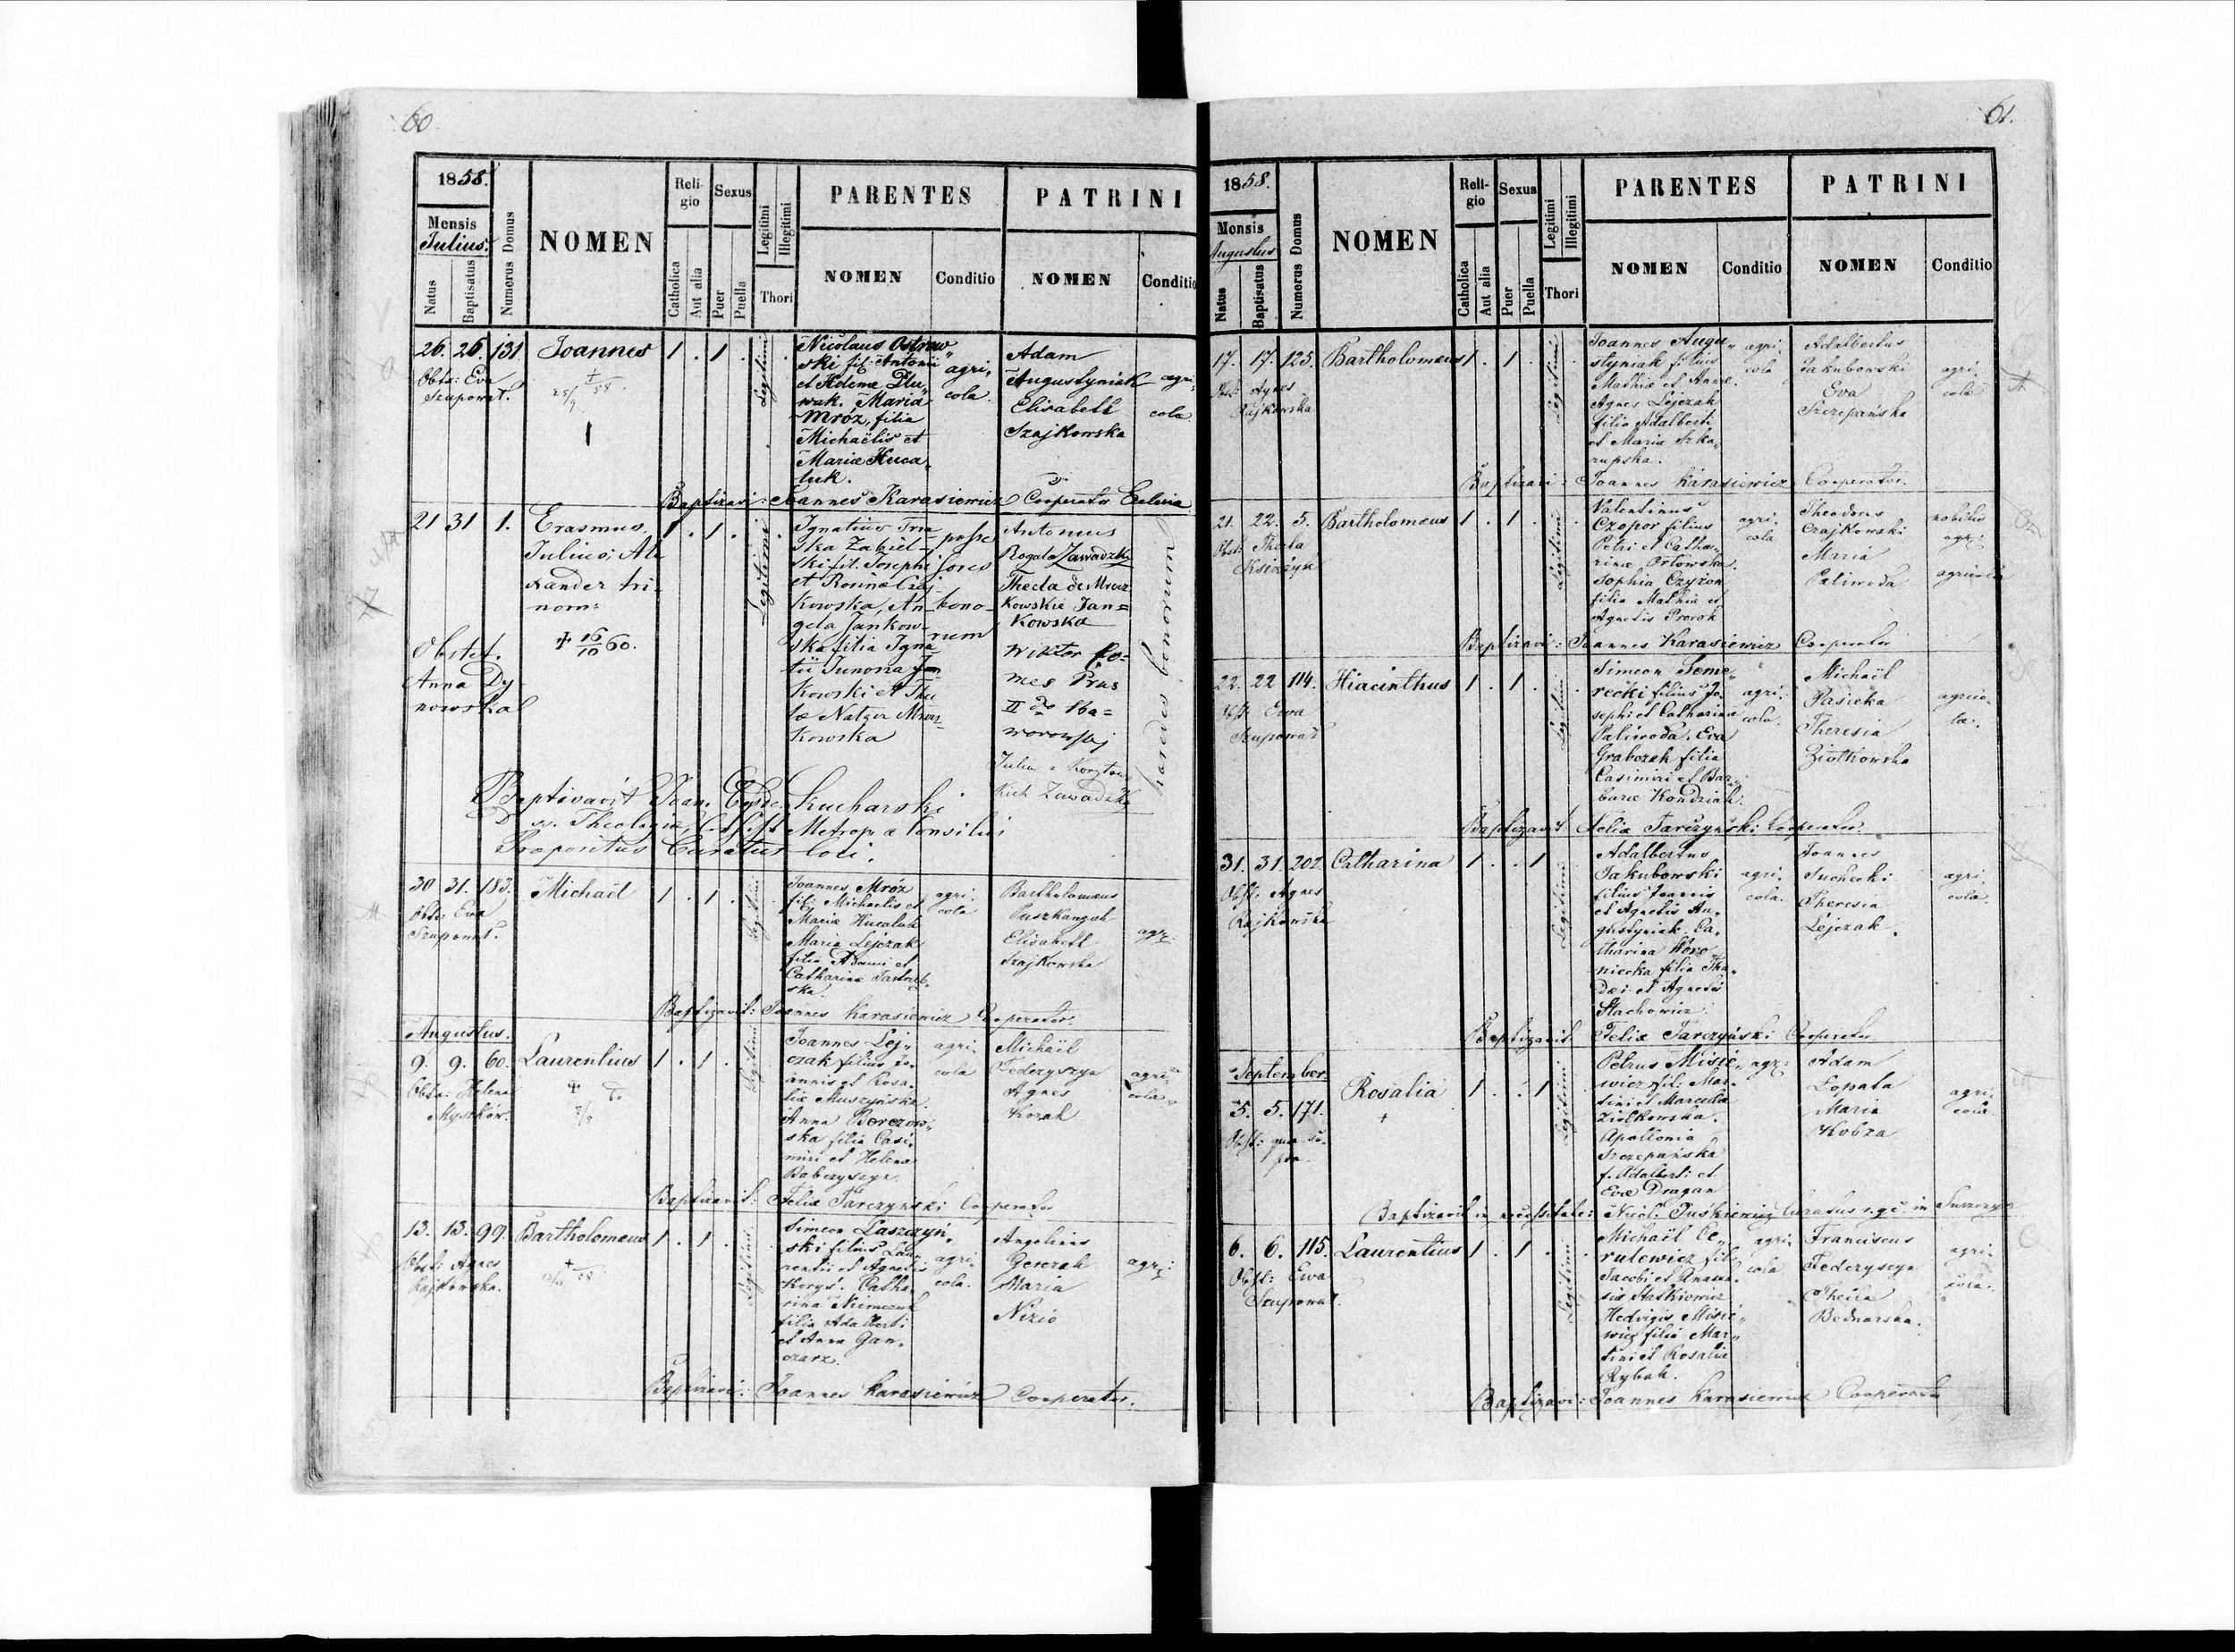 60.
1858.
Mensis
Julius.
Natus
Baptisatus
Numerus Domus
NOMEN
Reli-
gio
Catholica
Aut alia
Sexus
Puer
Puella
Legitimi
Illegitimi
Thori
PARENTES
NOMEN
Conditio
PATRINI
NOMEN
Conditio
26. 26. 131 Joannes 1 . 1 .
Obst: Eva
Szuponat.
25/9 + 58
Legitimi
Nicolaus Ostrow„
ski fil: Antonii
et Helenæ Dłu„
wak. Maria
Mróz, filia
Michaëlis et
Mariæ Huca„
luk.
agri„
cola
Adam
Augustyniak
Elisabeth
Szajkowska
agri„
cola
Baptizavi: Joannes Karasiewicz Cooperator
21 31 1. Erasmus
Julius, Ale
xander tri-
nom:
+ 16/10 60.
1 . 1 .
Obstet.
Anna Dy-
nowska
Legitimi
Ignatius Trza
ska Zabiel-
ski fil. Josephi
et Rosinæ Ciej
kowska, An-
gela Jankow-
ska filia Igna
tii Junona Jan
kowski et The
læ Natger Mrocz-
kowska
posses
sores
bono-
rum
Antonius
Rogala Zawadzki
Thecla de Mrocz
kowskie Jan=
kowska
Wiktor Co=
mes Prus
II do Ska=
worowski
Julia z Korytow
skich Zawadzka
haeredes bonorum
Baptisavit Joan. Kucharski
ss. Theologiæ Metrop. a Consiliis
Praepositus Curatus loci.
30 31. 183. Michaël 1 . 1 .
Obst: Eva
Szuponat.
Legitimi
Joannes Mróz
fil: Michaelis et
Mariæ Hucaluk
Maria Lejczak
filia Adami et
Catharinæ Jastrzęb„
ska.
agri„
cola
Bartholomæus
Puszkanzuk
Elisabeth
Szajkowska
agr:
Baptizavit: Joannes Karasiewicz Cooperator.
Augustus.
9. 9. 60. Laurentius 1 . 1 .
Obst: Helena
Myszków.
Legitimi
Joannes Lej„
czak filius Jo„
annis et Rosa„
liæ Muszyńska.
Anna Borczow„
ska filia Casi„
miri et Helenæ
Baberyszyn.
agri„
cola
Michaël
Federyszyn
Agnes
Kozak
agri„
cola
Baptizavit: Felix Tarczyński Cooperator
13. 13. 99. Bartholomæus 1 . 1 .
Obst: Agnes
Rajkowska.
Legitimi
Simeon Laszczyń„
ski filius Lau„
rentii et Agnetis
Koryś. Catha„
rina Niemczuk
filia Adalberti
et Anna Gan„
czarz.
agri„
cola.
Angelinus
Gerczak
Maria
Nizio
agr:
Baptizavi: Joannes Karasiewicz Cooperator.
61.
1858.
Mensis
Augustus
Natus
Baptisatus
Numerus Domus
NOMEN
Reli-
gio
Catholica
Aut alia
Sexus
Puer
Puella
Legitimi
Illegitimi
Thori
PARENTES
NOMEN
Conditio
PATRINI
NOMEN
Conditio
17. 17. 125. Bartholomæus 1 . 1 .
Obst: Agnes
Rajkowska
Legitimi
Joannes Augu„
styniak filius
Mathiæ et Annæ.
Agnes Lejczak
filia Adalberti
et Mariæ Szka„
rupska.
agri„
cola
Adalbertus
Jakubowski
Eva
Szczepańska
agri„
cola
Baptizavi: Joannes Karasiewicz Cooperator.
21. 22. 5. Bartholomæus 1 . 1 .
Obst: Thecla
Księżyk
Legitimi
Valentinus
Czopor filius
Petri et Catha„
rinæ Orłowska.
Sophia Czyżon
filia Mathiæ et
Agnetis Prorok
agri„
cola
Theodorus
Czajkowski
Maria
Paliwoda
nobilis
agr:
agricola
Baptizavi: Joannes Karasiewicz Cooperator
22. 22 114. Hiacinthus 1 . 1 .
Obst: Ewa
Szuponat
Legitimi
Simeon Seme„
recki filius Jo„
sephi et Catharinæ
Paliwoda. Eva
Grabczak filia
Casimiri et Bar„
baræ Kondziak.
agri„
cola.
Michaël
Pasieka
Theresia
Ziółkowska
agrico„
la.
Baptizavit Felix Tarczyński Cooperator
31. 31. 202. Catharina 1 . . 1
Obst: Agnes
Rajkowska
Legitimi
Adalbertus
Jakubowski
filius Joannis
et Agnetis Au„
gustyniak. Ca„
tharina Woro„
niecka filia Tha„
dæi et Agnetis
Stachowicz
agri„
cola.
Joannes
Suchecki
Theresia
Lejczak.
agri„
cola.
Baptizavit Felix Tarczyński Cooperator
September
5. 5. 171. Rosalia 1 . . 1
+
Legitimi
Petrus Misie„
wicz fil: Mar„
tini et Marcella
Ziółkowska.
Apollonia
Szczepańska
f. Adalberti et
Evæ Dragan
agr:
Adam
Łopata
Maria
Kobza
agri„
cola
Baptizavit in necessitate: Nicol: Juśkiewicz Curatus r. gr. in
6. 6. 115. Laurentius 1 . 1 .
Obst: Ewa
Szuponat.
Legitimi
Michaël Ce„
rulewicz fil:
Jacobi et Anasta„
siæ Staśkiewicz
Hedvigis Misie„
wicz filia Mar„
tini et Rosaliæ
Rybak.
agri„
cola
Franciscus
Federyszyn
Thecla
Bednarska.
agri„
cola.
Baptizavi: Joannes Karasiewicz Cooperator